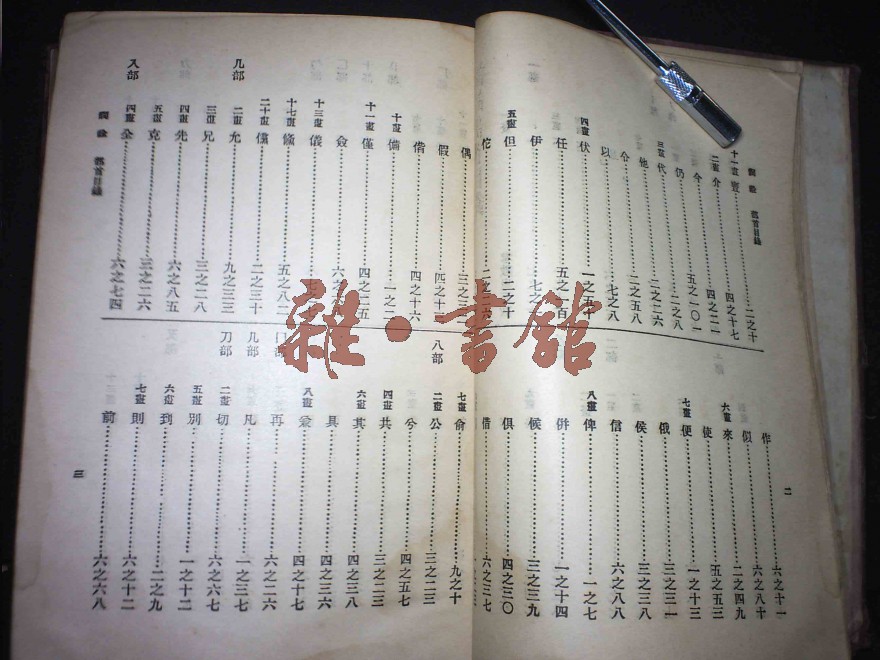 詞詮 部首目錄
十一畫 亶……二之十
二畫 介……四之十七
今……四之二一
仍……五之一〇一
三畫 代……二之八
他……二之二六
令……二之五八
以……七之八
四畫 伏……
任……五之一百
伊……七之
五畫 但……二之十
佗……二之
作……六之十一
似……六之八十
六畫 來……二之四九
使……五之五三
七畫 便……一之十三
俄……三之三一
侯……三之三八
信……六之八八
八畫 俾……一之七
併……一之十四
候……三之三九
俱……四之三〇
借……六之三七
二
偶……三之三二
假……四之十三
偕……四之十六
十畫 備……一之二
十一畫 僅……四之三五
僉……六之
十三畫 儀……七之
十七畫 儵……五之八二
二十畫 儻……二之三十
儿部 二畫 允……九之三三
三畫 兄……三之二八
四畫 先……六之八五
五畫 克……三之二六
入部 四畫 全……六之七四
詞詮 部首目錄
七畫 兪……九之十
八部 二畫 公……三之二三
兮……四之五七
四畫 共……三之二三
六畫 其……四之三八
具……四之三六
八畫 兼……四之十七
冂部 再……六之二六
几部 凡……一之三七
刀部 二畫 切……六之六七
五畫 別……一之十二
六畫 到……二之九
七畫 則……六之十二
前……六之六八
三
雜·書館